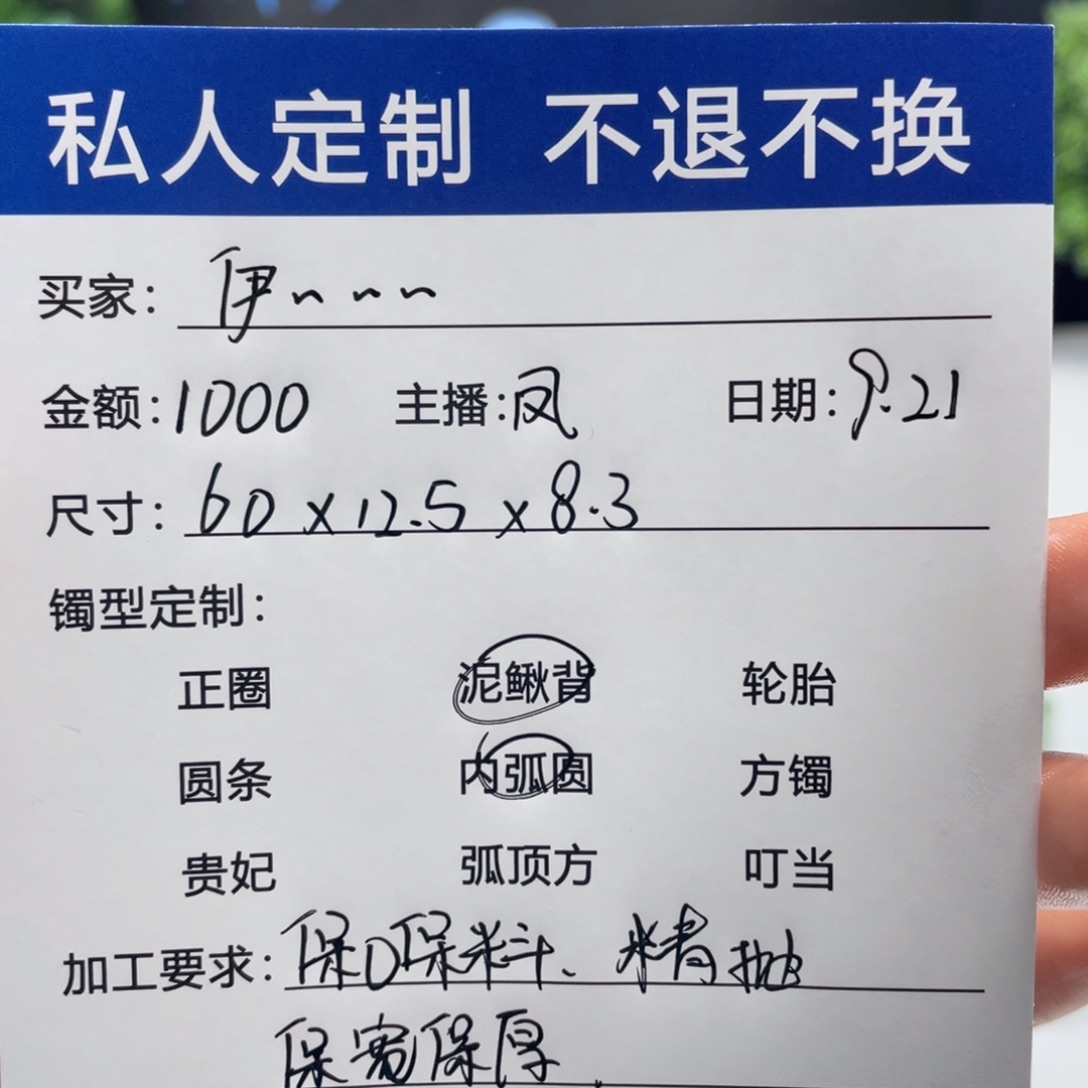 私人定制 不退不换
买家：伊~~~
金额：1000 主播：凤 日期：9.21
尺寸：60×12.5×8.3
镯型定制：
正圈 泥鳅背 轮胎
圆条 内弧圆 方镯
贵妃 弧顶方 叮当
加工要求：保口保料、精抛
保宽保厚